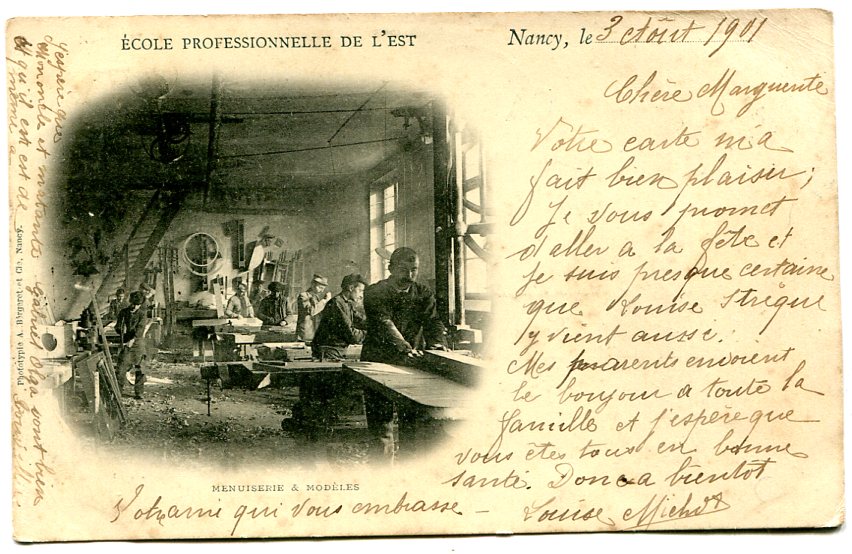 ÉCOLE PROFESSIONNELLE DE L'EST
Nancy, le 3 Août 1901
Chère Marguerite
Votre carte m a
fait bien plaisir;
Je vous promet
d aller a la fête et
je suis presque certaine
que Louise Strèque
y vient aussi.
Mes parents envoient
le bonjour a toute la
famille et j'espère que
vous êtes tous en bonne
santé. Donc a bientôt
Louise Michot
Votre amie qui vous embrasse -
MENUISERIE & MODÈLES
Phototypie A. Bergeret et Cie, Nancy.
J'espère que
et
Gabriel Olga vont bien
et qu'il est de
même a